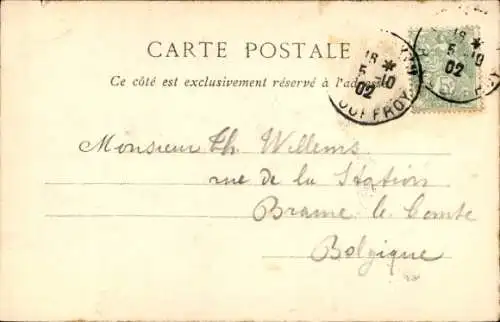 CARTE POSTALE
Ce côté est exclusivement réservé à l'adresse
18 *
5 -10
02
18 *
5 -10
02
Monsieur Th Willems
rue de la Station
Braine le Comte
Belgique